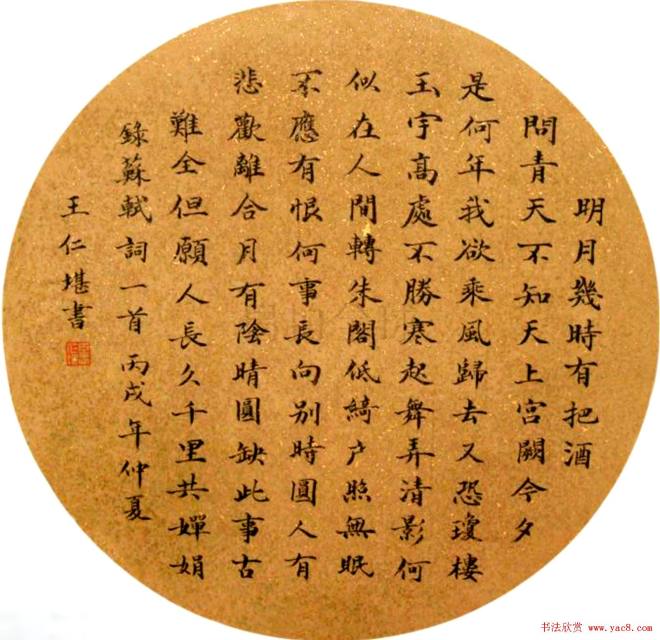 明月幾時有把酒
問青天不知天上宮闕今夕
是何年我欲乘風歸去又恐瓊樓
玉宇高處不勝寒起舞弄清影何
似在人間轉朱閣低綺户照無眠
不應有恨何事長向別時圓人有
悲歡離合月有陰晴圓缺此事古
難全但願人長久千里共嬋娟
錄蘇軾詞一首丙戌年仲夏
王仁堪書
书法欣赏 www.yac8.com